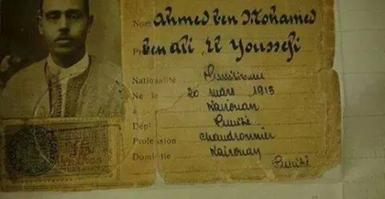 Nom Ahmed ben Mohamed
ben ali El Youssefi
Nationalité Tunisienne
Né le 20 mars 1913
à Kairouan
Dépt Tunisie
Profession chaudronnier
Domicile Kairouan
Tunisie